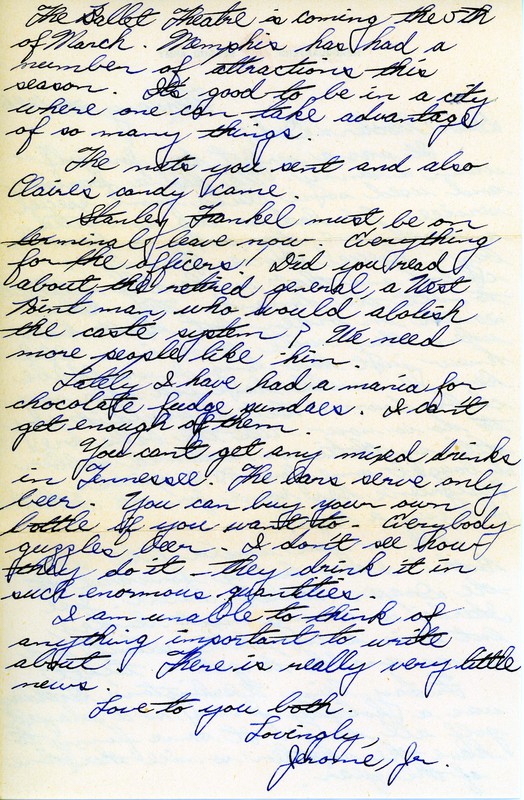 The Ballet Theatre is coming the 5th
of March. Memphis has had a
number of attractions this
season. It's good to be in a city
where one can take advantage
of so many things.
The nuts you sent and also
Claire's candy came.
Stanley Frankel must be on
terminal leave now. Everything
for the officers! Did you read
about the retired general, a West
Point man, who would abolish
the caste system? We need
more people like him.
Lately I have had a mania for
chocolate fudge sundaes. I can't
get enough of them.
You can't get any mixed drinks
in Tennessee. The bars serve only
beer. You can buy your own
bottle if you want to. Everybody
guzzles beer. I don't see how
they do it - they drink it in
such enormous quantities.
I am unable to think of
anything important to write
about. There is really very little
news.
Love to you both.
Lovingly,
Jerome, Jr.